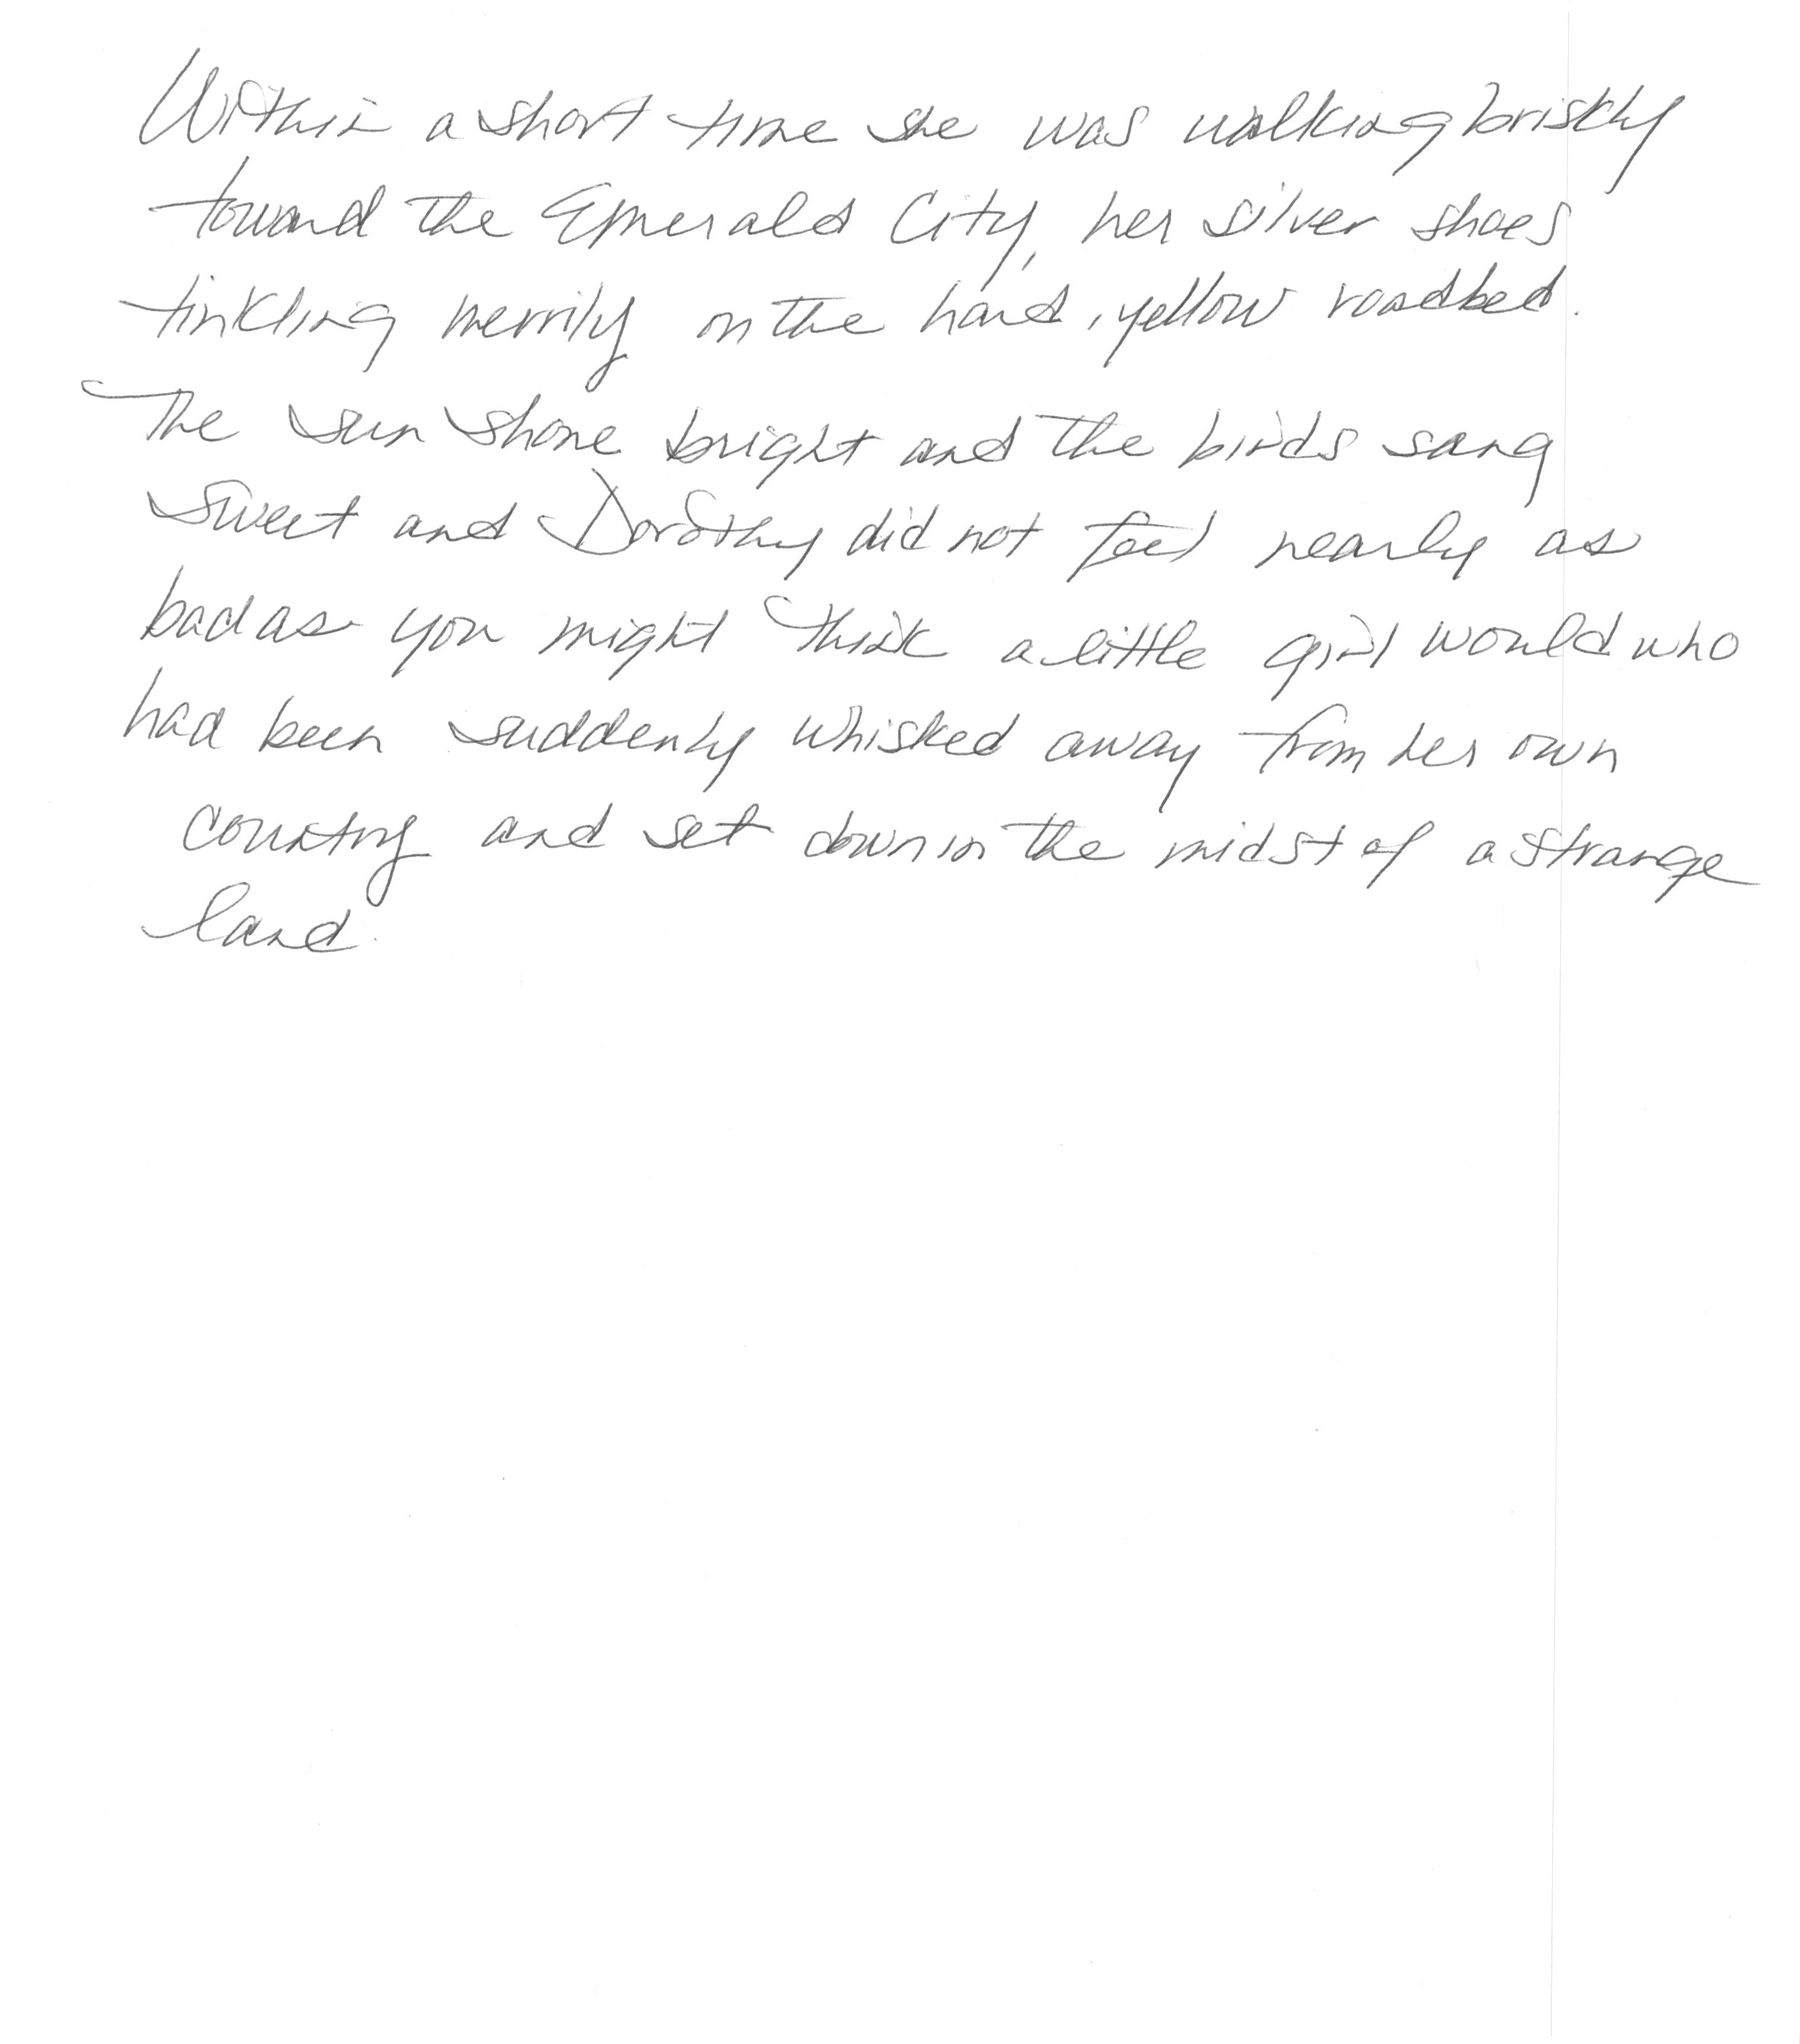 Within a short time she was walking briskly
toward the Emerald City, her silver shoes
tinkling merrily on the hard, yellow roadbed.
The sun shone bright and the birds sang
sweet and Dorothy did not feel nearly as
bad as you might think a little girl would who
had been suddenly whisked away from her own
country and set down in the midst of a strange
land.